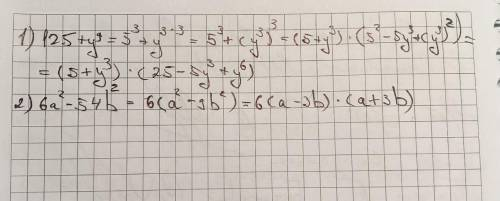 1) 125+y⁹ = 5³+y³·³ = 5³+(y³)³ = (5+y³)·(5²-5y³+(y³)²)=
= (5+y³)·(25-5y³+y⁶)
2) 6a²-54b² = 6(a²-9b²)=6(a-3b)·(a+3b)